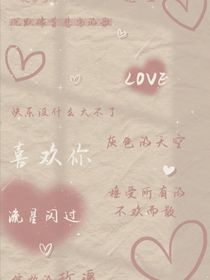 LOVE
快乐没什么大不了
灰色的天空
喜欢你
接受所有的
不欢而散
流星闪过